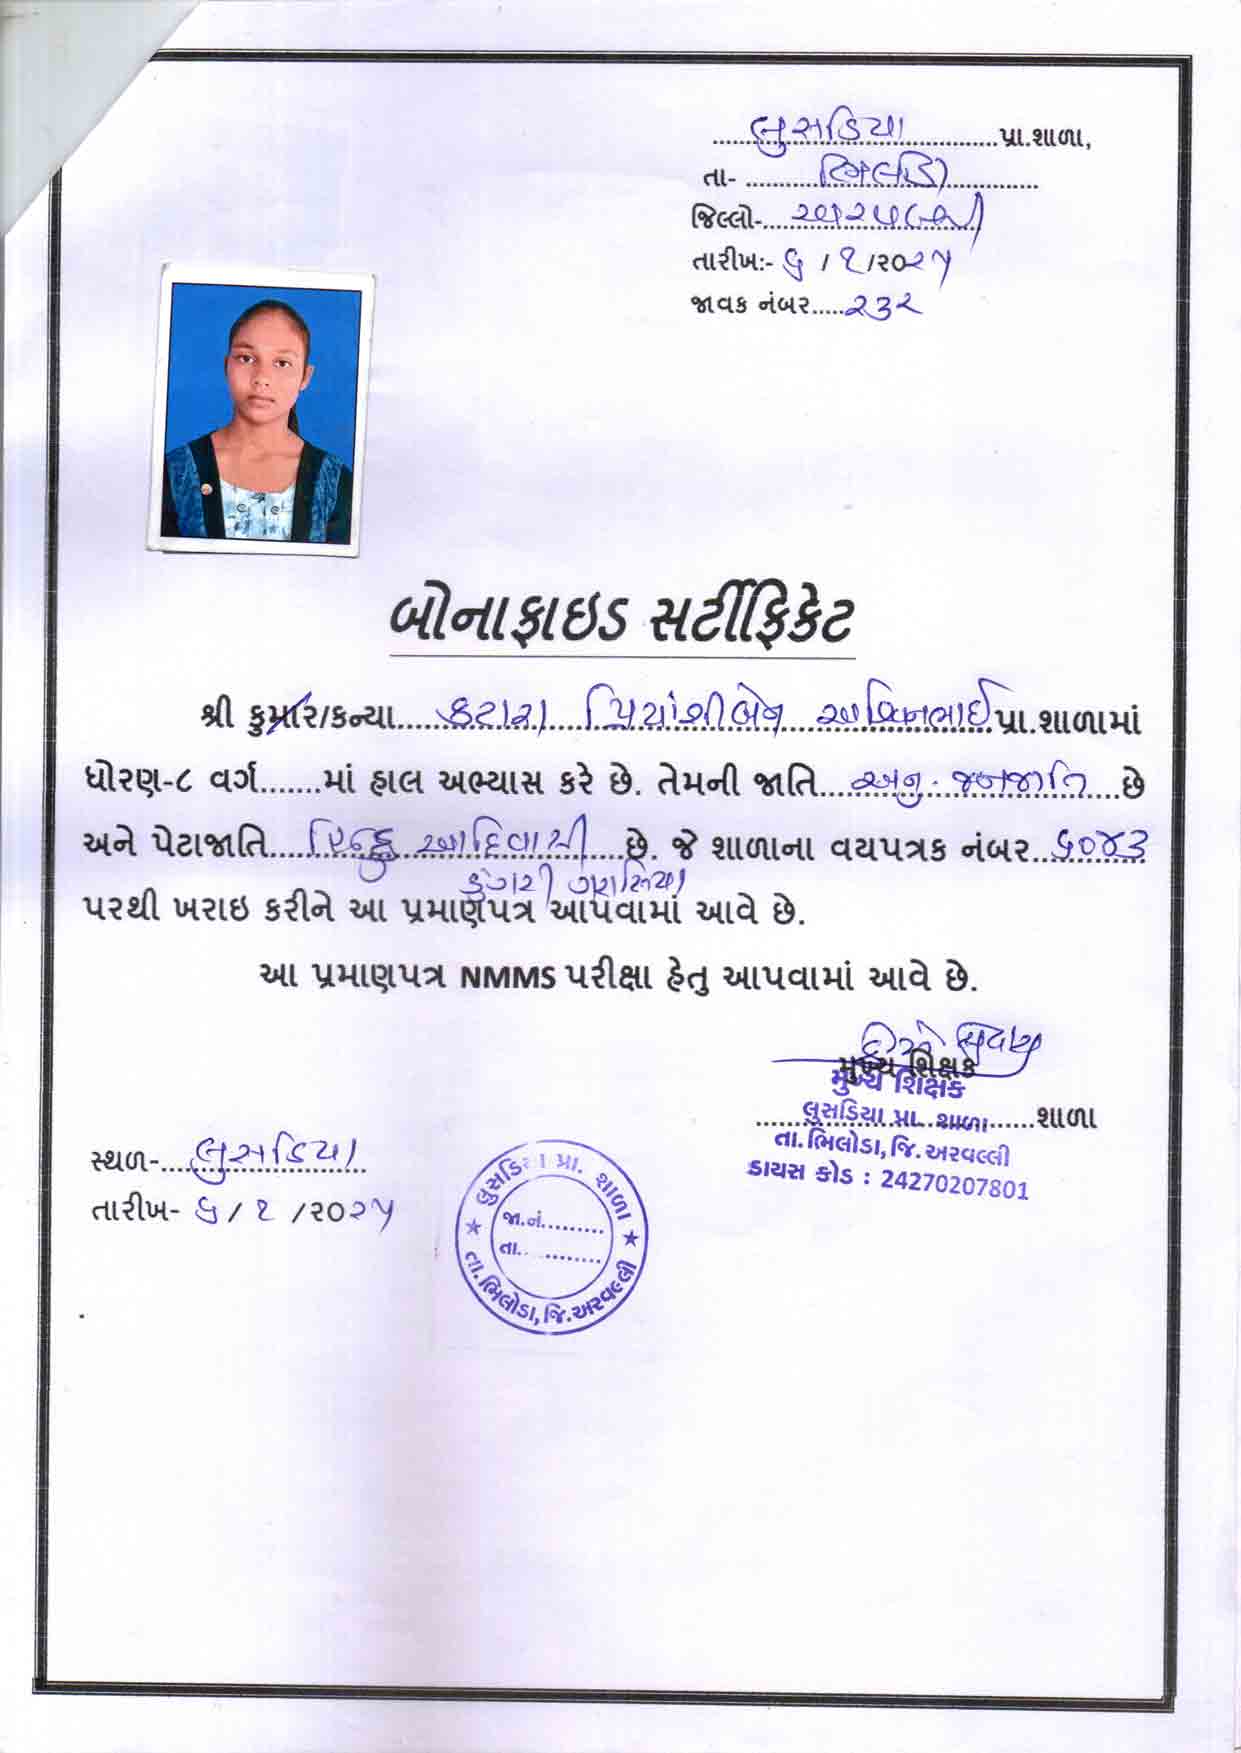 લુસડિયા પ્રા.શાળા,
તા- ભિલોડા
જિલ્લો- અરવલ્લી
તારીખઃ- ૬ / ૧ /૨૦૨૫
જાવક નંબર.....૨૩૨
બોનાફાઇડ સર્ટીફિકેટ
શ્રી કુમાર/કન્યા કટારા પ્રિયાંશીબેન અશ્વિનભાઈ પ્રા.શાળામાં
ધોરણ-૮ વર્ગ.......માં હાલ અભ્યાસ કરે છે. તેમની જાતિ અનુ. જનજાતિ છે
અને પેટાજાતિ હિન્દુ આદિવાસી છે. જે શાળાના વયપત્રક નંબર ૬૦૪૩
ડુંગરી ગરાસિયા
પરથી ખરાઇ કરીને આ પ્રમાણપત્ર આપવામાં આવે છે.
આ પ્રમાણપત્ર NMMS પરીક્ષા હેતુ આપવામાં આવે છે.
મુખ્ય શિક્ષક
મુખ્ય શિક્ષક
લુસડિયા પ્રા. શાળા
શાળા
તા.ભિલોડા, જિ.અરવલ્લી
ડાયસ કોડ : 24270207801
સ્થળ- લુસડિયા
તારીખ- ૬ / ૧ /૨૦૨૫
લુસડિયા પ્રા. શાળા
જા.નં.........
તા...........
★ તા.ભિલોડા, જિ.અરવલ્લી ★